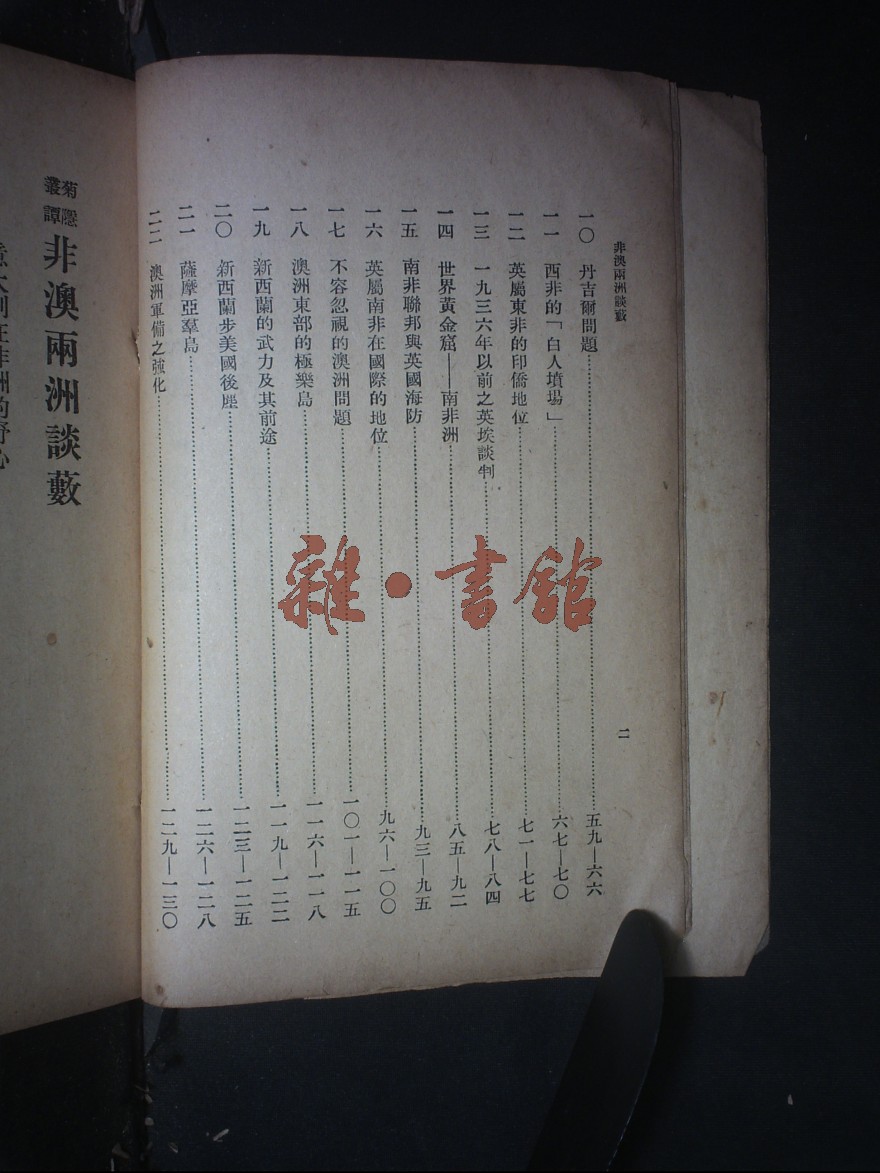 非澳兩洲談藪
二
一〇 丹吉爾問題……五九—六六
一一 西非的「白人墳場」……六七—七〇
一二 英屬東非的印僑地位……七一—七七
一三 一九三六年以前之英埃談判……七八—八四
一四 世界黃金窟——南非洲……八五—九二
一五 南非聯邦與英國海防……九三—九五
一六 英屬南非在國際的地位……九六—一〇〇
一七 不容忽視的澳洲問題……一〇一—一一五
一八 澳洲東部的極樂島……一一六—一一八
一九 新西蘭的武力及其前途……一一九—一二二
二〇 新西蘭步美國後塵……一二三—一二五
二一 薩摩亞羣島……一二六—一二八
二二 澳洲軍備之強化……一二九—一三〇
菊隱
叢譚
非澳兩洲談藪
雜·書館